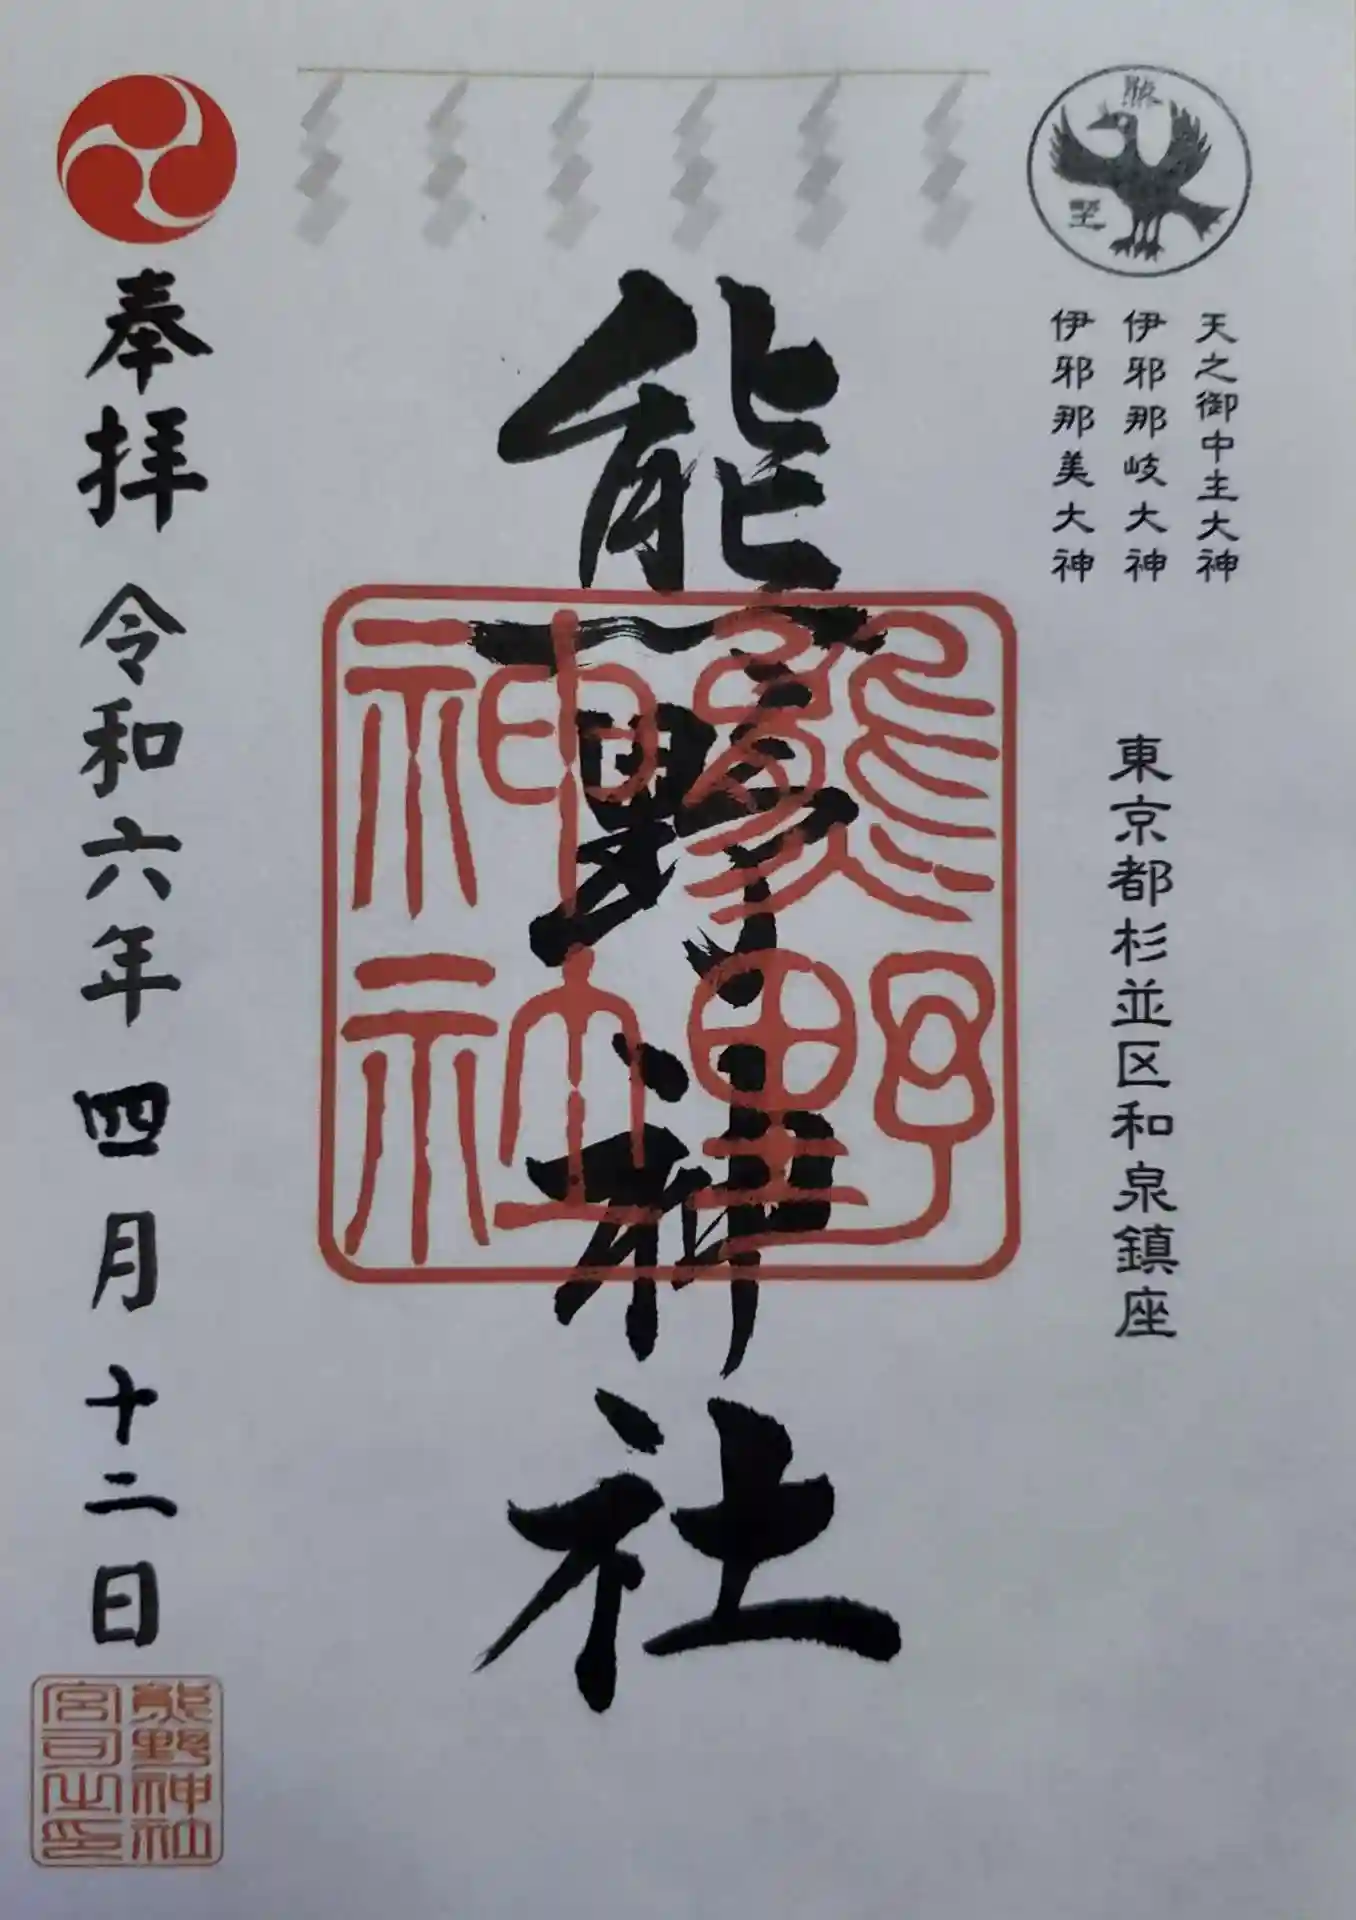 熊野
天之御中主大神
伊邪那岐大神
伊邪那美大神
東京都杉並区和泉鎮座
熊野神社
熊野
神社
奉拝
令和六年四月十二日
熊野神社
宮司之印